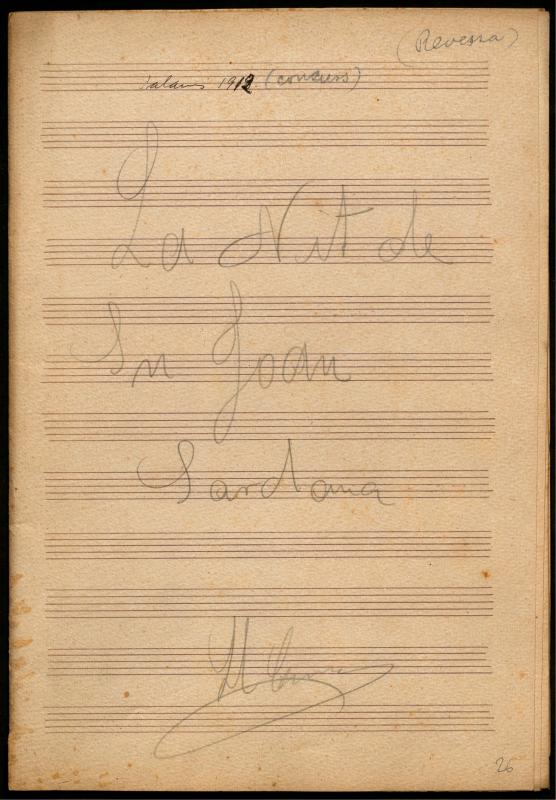 (Revessa)
1912. (concurs)
La Nit de
Sn Joan
Sardana
26